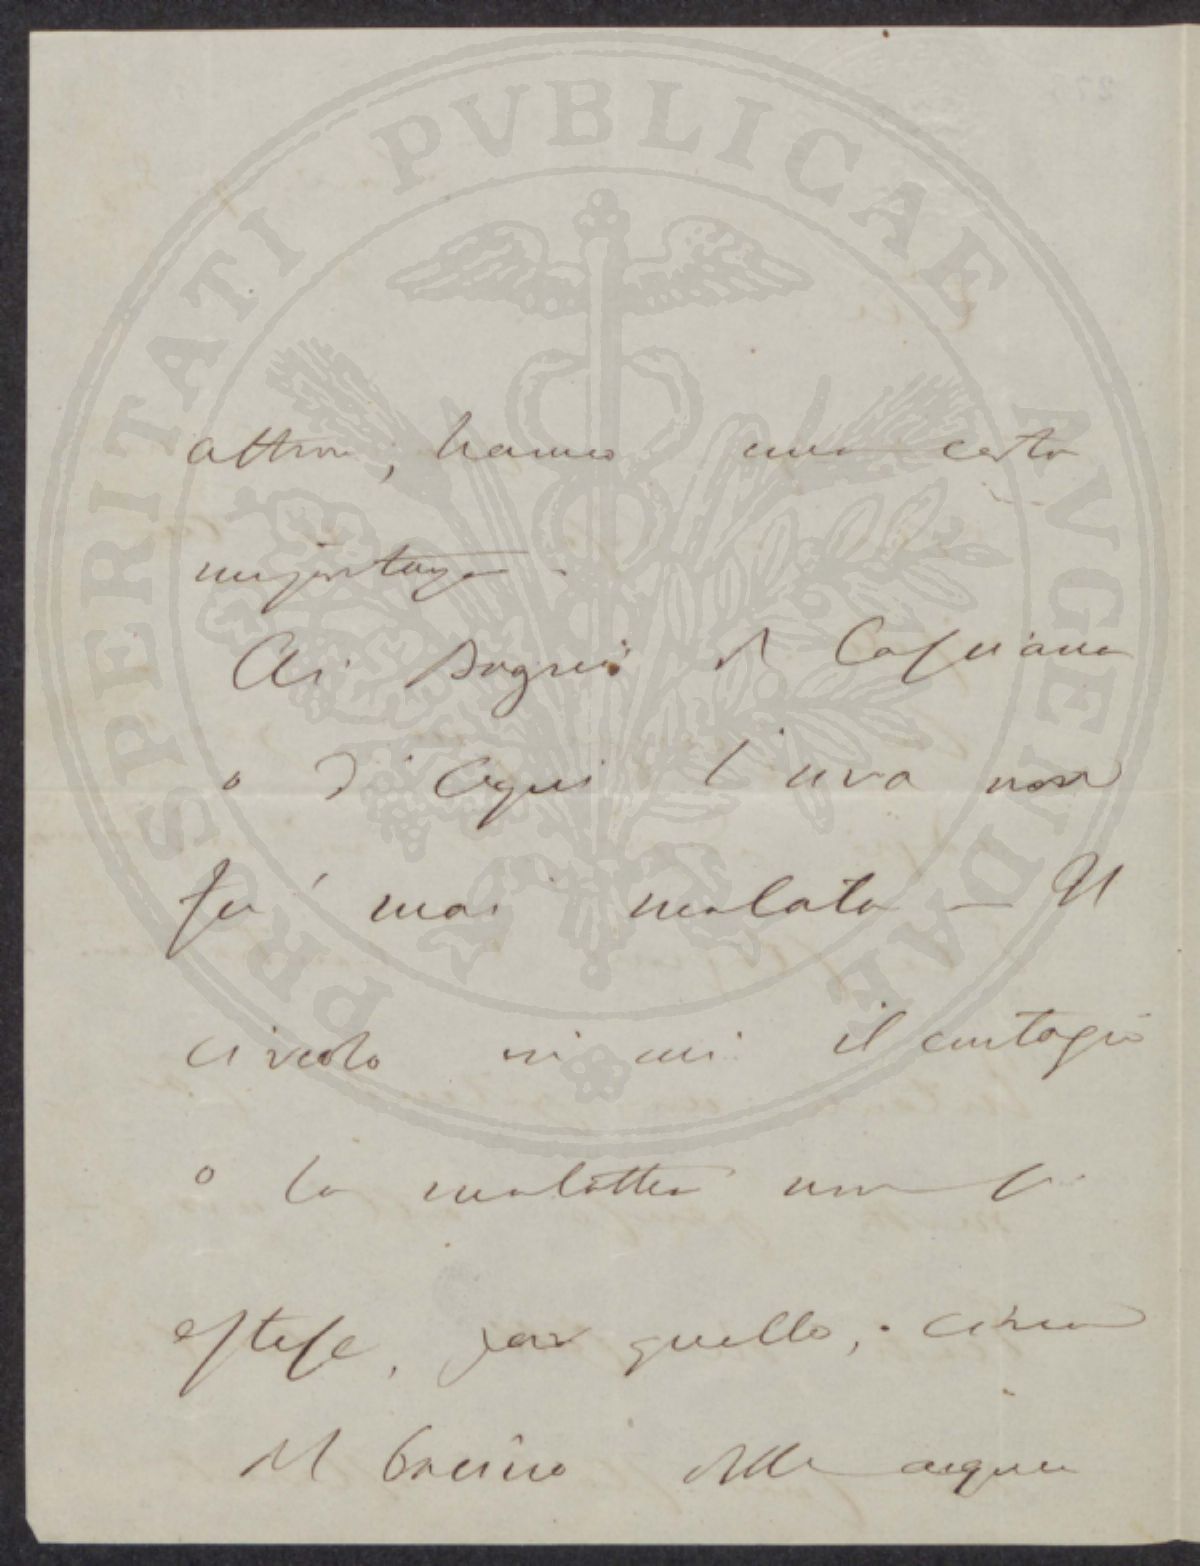 PROSPERITATI PVBLICAE AVGENDAE
hanno una certa
Ai Bagni di Casciana
o d'Acqui l'uva non
fu mai malata — Il
circolo il contagio
o la malattia non si
estese, per quello,
del bacino delle acque